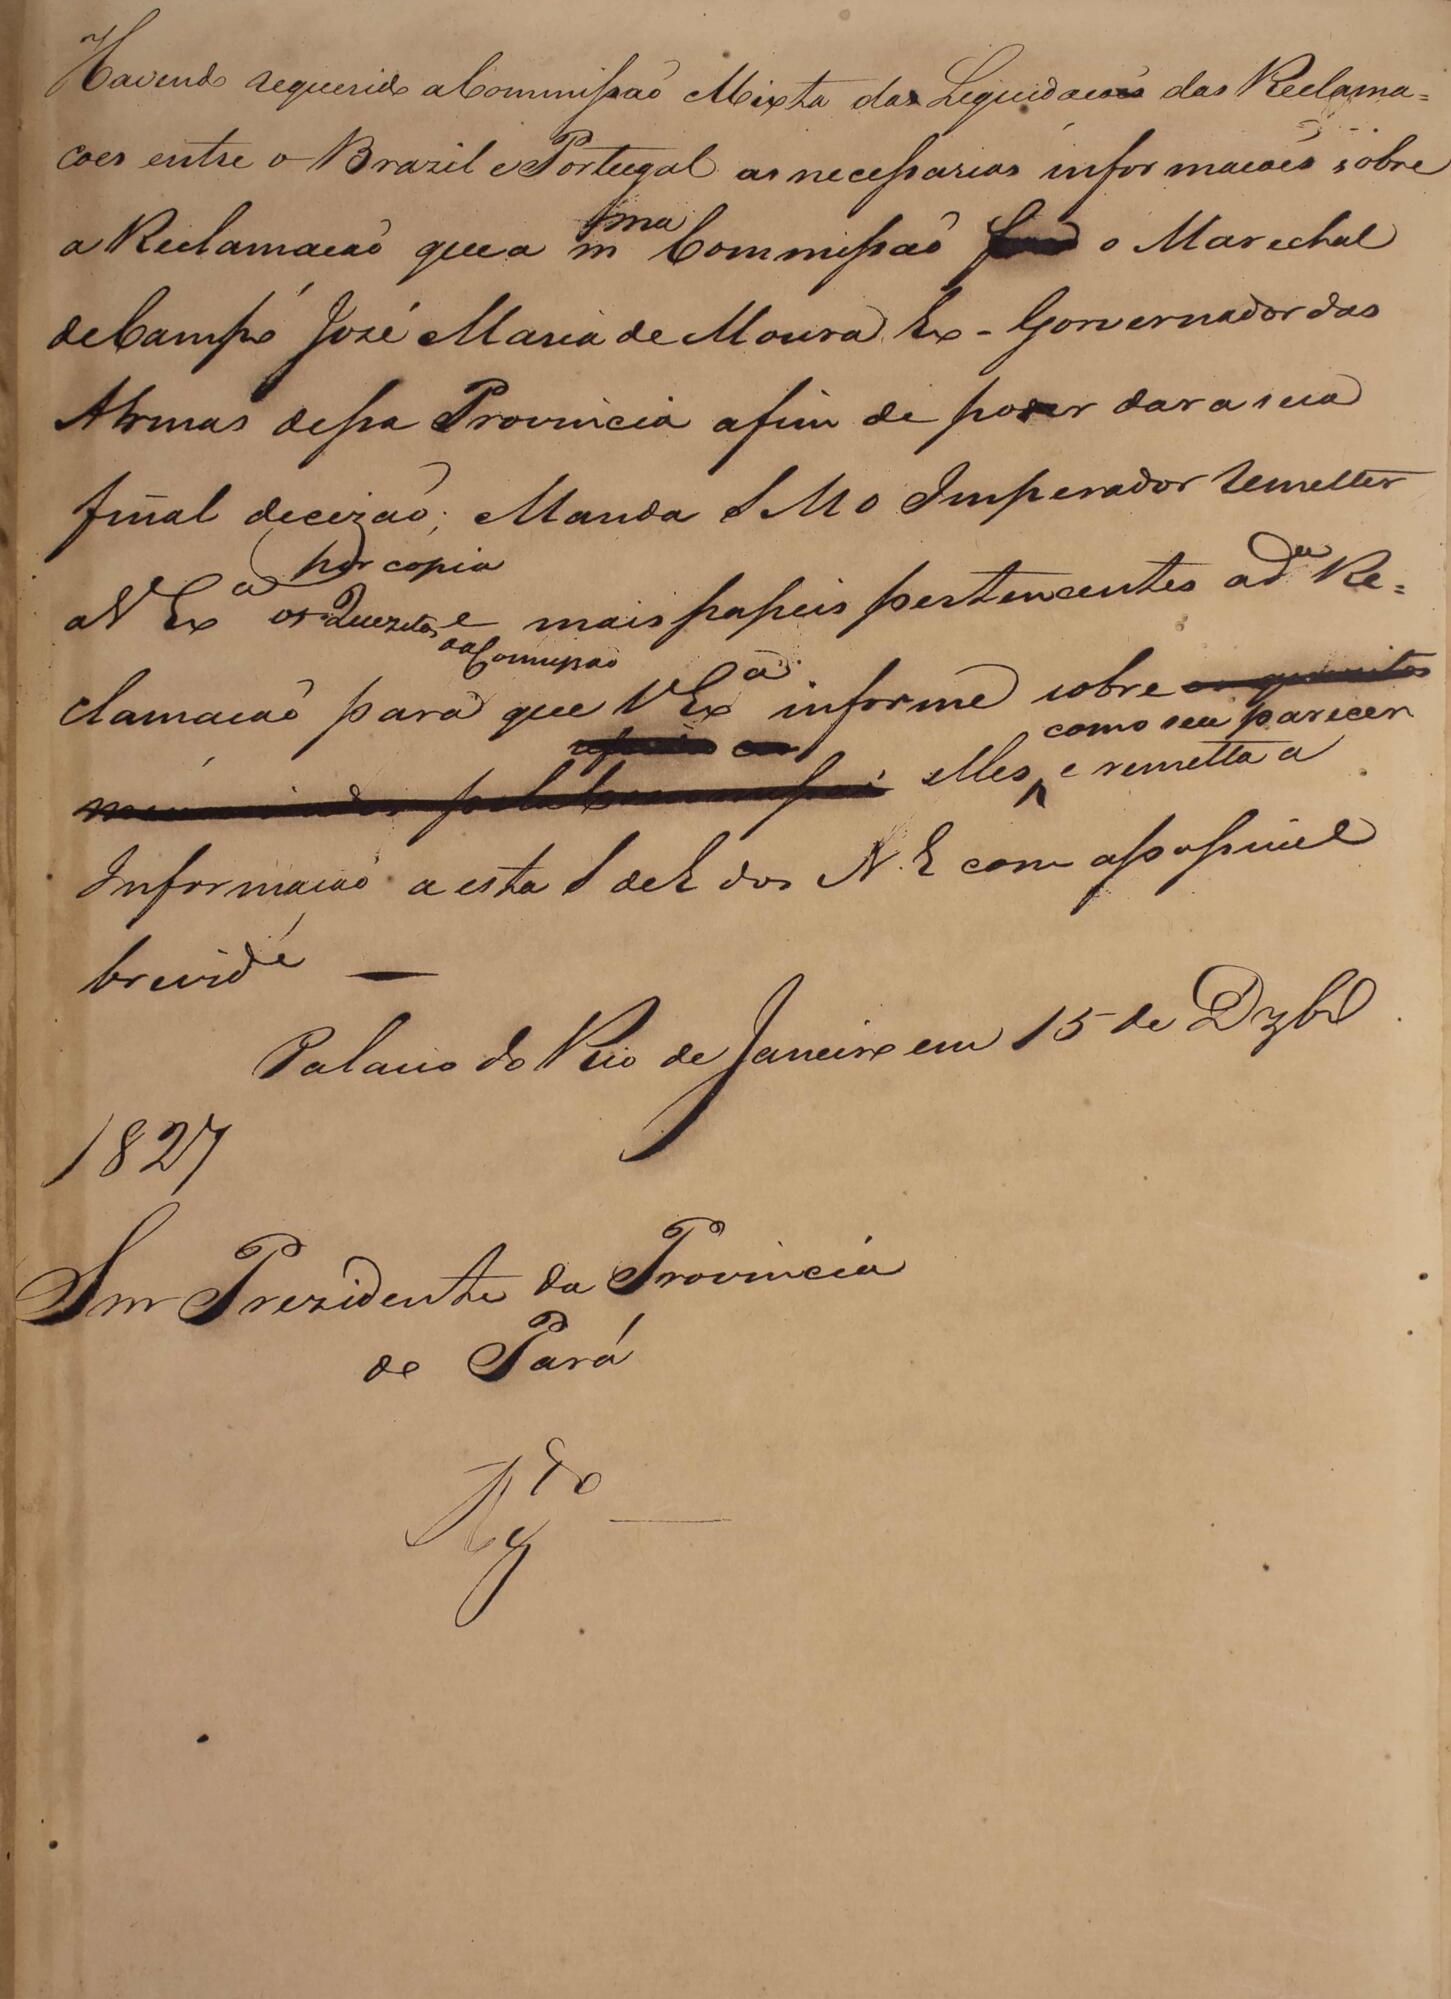 Havendo requerido a Commissaõ Mixta das Liquidacoes das Reclama=
coes entre o Brazil e Portugal as necessarias informacoẽs sobre
a Reclamacaõ que a m ma Commissaõ o Marechal
de Campo José Maria de Moura Ex-Governador das
Armas dessa Provincia afim de poder dar a sua
final decizaõ; Manda S M o Imperador remetter
por copia
a V Ex a os Quezitos e mais papeis pertencentes a d a Re=
da Comissaõ
clamacaõ para que V Ex a informe sobre
como seu parecer
elles, e remetta a
Informacaõ a esta S de E dos N. E com a possivel
brevid e —
Palacio do Rio de Janeiro em 15 de Dzbro
1827
Snr Prezidente da Provincia
de Pará